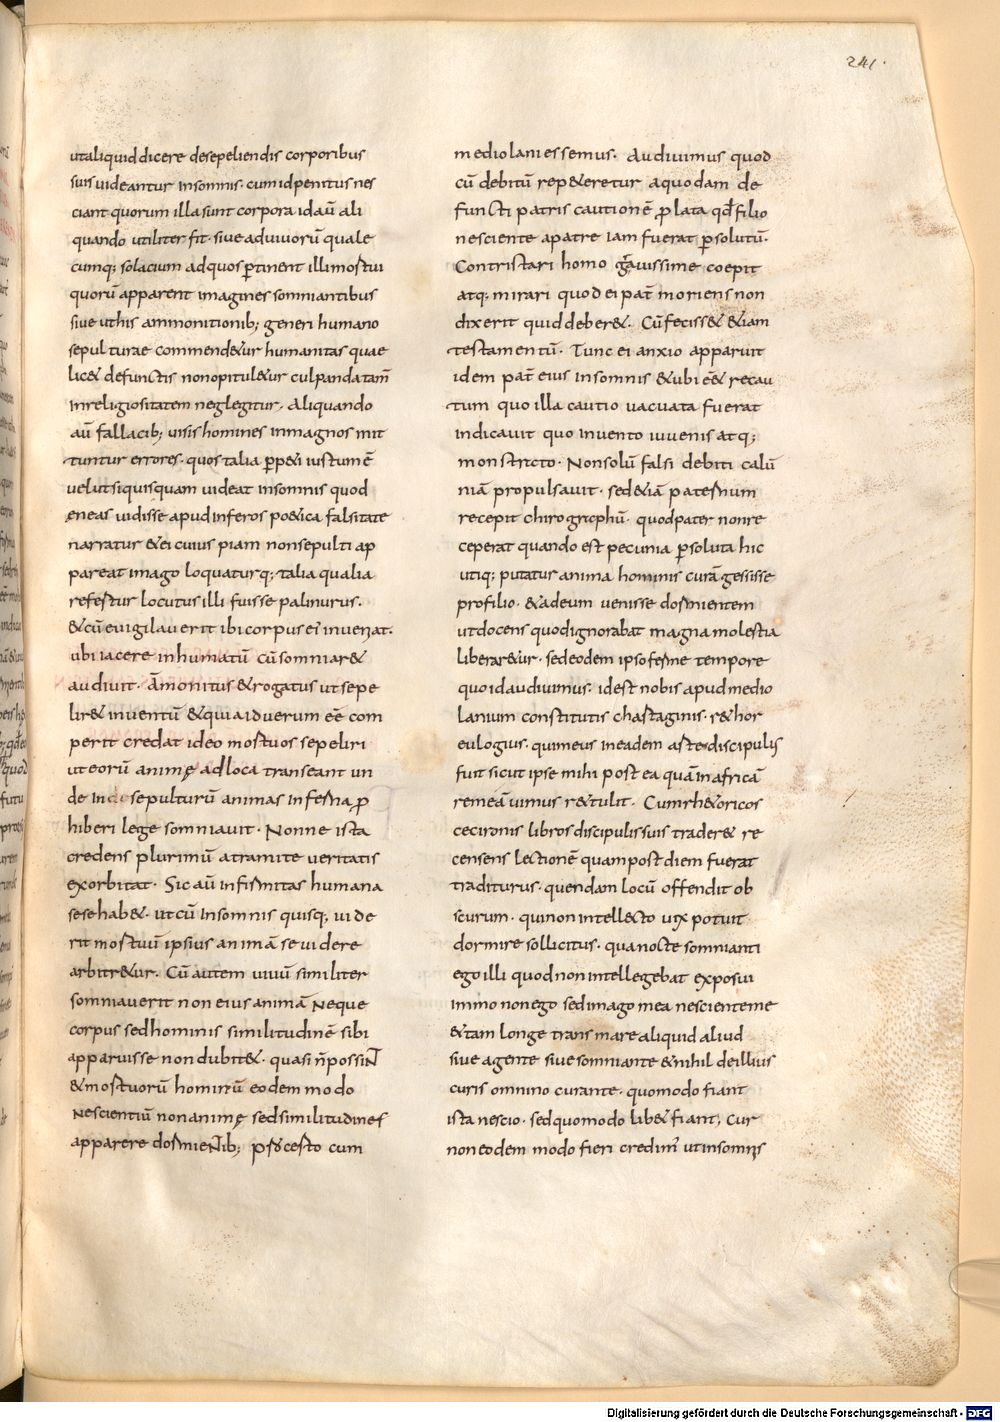 241.
utaliquid dicere desepeliendis corporibus
suis uideantur insomnis. cum id penitus nes
ciant quorum illa sunt corpora id aū ali
quando utiliter fit. siue ad uiuorū quale
cumq; solacium ad quos ꝑtinent illi mortui
quorū apparent imagines somniantibus
siue ut his ammonitionib; generi humano
sepulturae commend&ur humanitas quae
lic& defunctis non opitul&ur culpanda tam̄
inreligiositatem neglegitur. Aliquando
aū fallacib; uisis homines inmagnos mit
tuntur errores. quos talia ꝑpeti iustum ē
uelut si quisquam uideat insomnis quod
eneas uidisse apud inferos po&ica falsitate
narratur & ei cuius piam nonsepulti ap
pareat imago loquaturq; talia qualia
refertur locutus illi fuisse palinurus.
& cū euigilauerit ibi corpus ei inueniat.
ubi iacere inhumatū cū somniar&
audiuit. Āmonitus & rogatus ut sepe
lir& inuentū & quia id uerum eē com
perit credat ideo mortuos sepeliri
ut eorū animę ad loca transeant un
de insepulturū animas inferna ꝓ
hiberi lege somniauit. Nonne ista
credens plurimū atramite ueritatis
exorbitat. Sic aū infirmitas humana
sese hab&. ut cū insomnis quisq; uide
rit mortuū ipsius animā se uidere
arbitr&ur. Cū autem uiuū similiter
somniauerit non eius animā Neque
corpus sed hominis similitudinē sibi
apparuisse non dubit&. quasi n̄ possiNT
& mortuorū hominū eodem modo
Nescientiū non animę sed similitudines
apparere dormieNtib; cum
mediolani essemus. Audiuimus quod
cū debitū rep&eretur a quodam de
functi patris cautionē ꝓlata qd̄ filio
nesciente a patre iam fuerat ꝑsolutū.
Contristari homo grauissime coepit
atq; mirari quod ei pat̄ moriens non
dixerit quid deber&. Cū feciss& &iam
testamentū. Tunc ei anxio apparuit
idem pat̄ eius insomnis & ubi eē& recau
tum quo illa cautio uacuata fuerat
indicauit quo inuento iuuenis atq;
monstrato. Nonsolū falsi debiti calū
niā propulsauit. sed&iā paternum
recepit chirographū. quod pater non re
ceperat quando est pecunia ꝑsoluta hic
utiq; putatur anima hominis curā gessisse
pro filio. & adeum uenisse dormientem
ut docens quod ignorabat magna molestia
liberar&ur. sed eodem ipso ferme tempore
quo id audiuimus. id est nobis apud medio
lanium constitutis chartaginis. r&hor
eulogius. qui meus in eadem arte discipulus
fuit sicut ipse mihi post ea quā in africā
remeāuimus r&tulit. Cum rh&oricos
cecironis libros discipulis suis trader& re
censens lectionē quam postdiem fuerat
traditurus. quendam locū offendit ob
scurum. qui non intellecto uix potuit
dormire sollicitus. qua nocte somnianti
ego illi quod non intellegebat exposui
immo non ego sed imago mea nesciente me
& tam longe trans mare aliquid aliud
siue agente siue somniante & nihil de illius
curis omnino curante. quomodo fiant
ista nescio. sed quomodo lib& fiant; Cur
non eodem modo fieri credim' ut insomnis
Digitalisierung gefördert durch die Deutsche Forschungsgemeinschaft - DFG